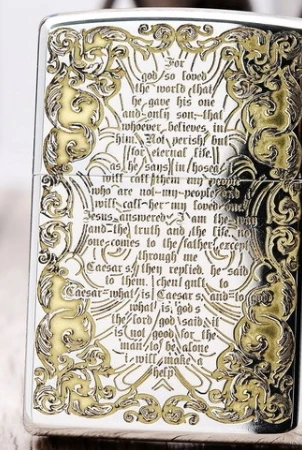 For
god so loved
the world that
he gave his one
and only son, that
whoever believes in
him. Not perish but
for eternal life.
as he says in hosea I
will call them my people
who are not my people and
will call her my loved one.
Jesus answered, I am the way
and the truth and the life. no
one comes to the father except
through me
Caesars, they replied. he said
to them,
Caesar what is Caesars and to god
what is gods
the lord god said, it
is not good for the
man to be alone
i will make a
help